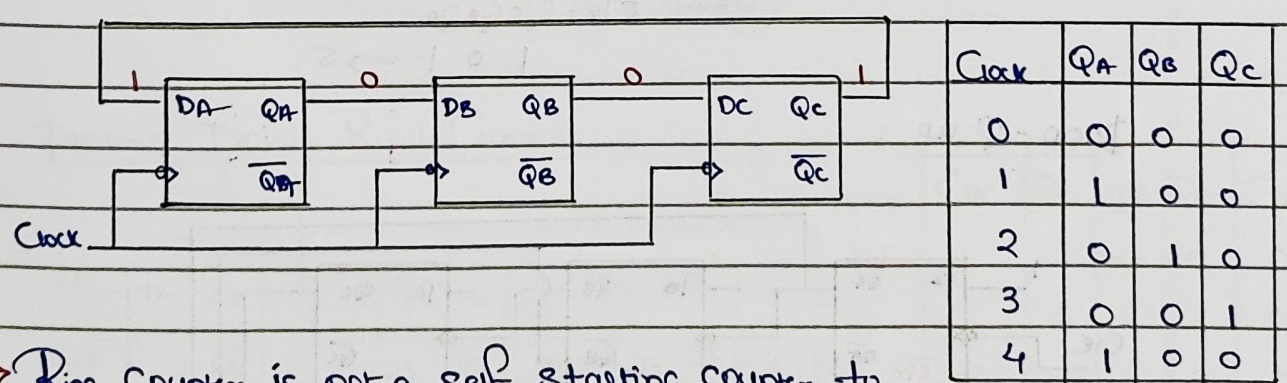 1 0 0 1
DA QA DB QB DC QC
QA QB QC
Clock
Clock QA QB QC
0 0 0 0
1 1 0 0
2 0 1 0
3 0 0 1
4 1 0 0
Ring counter is not a self starting counter to